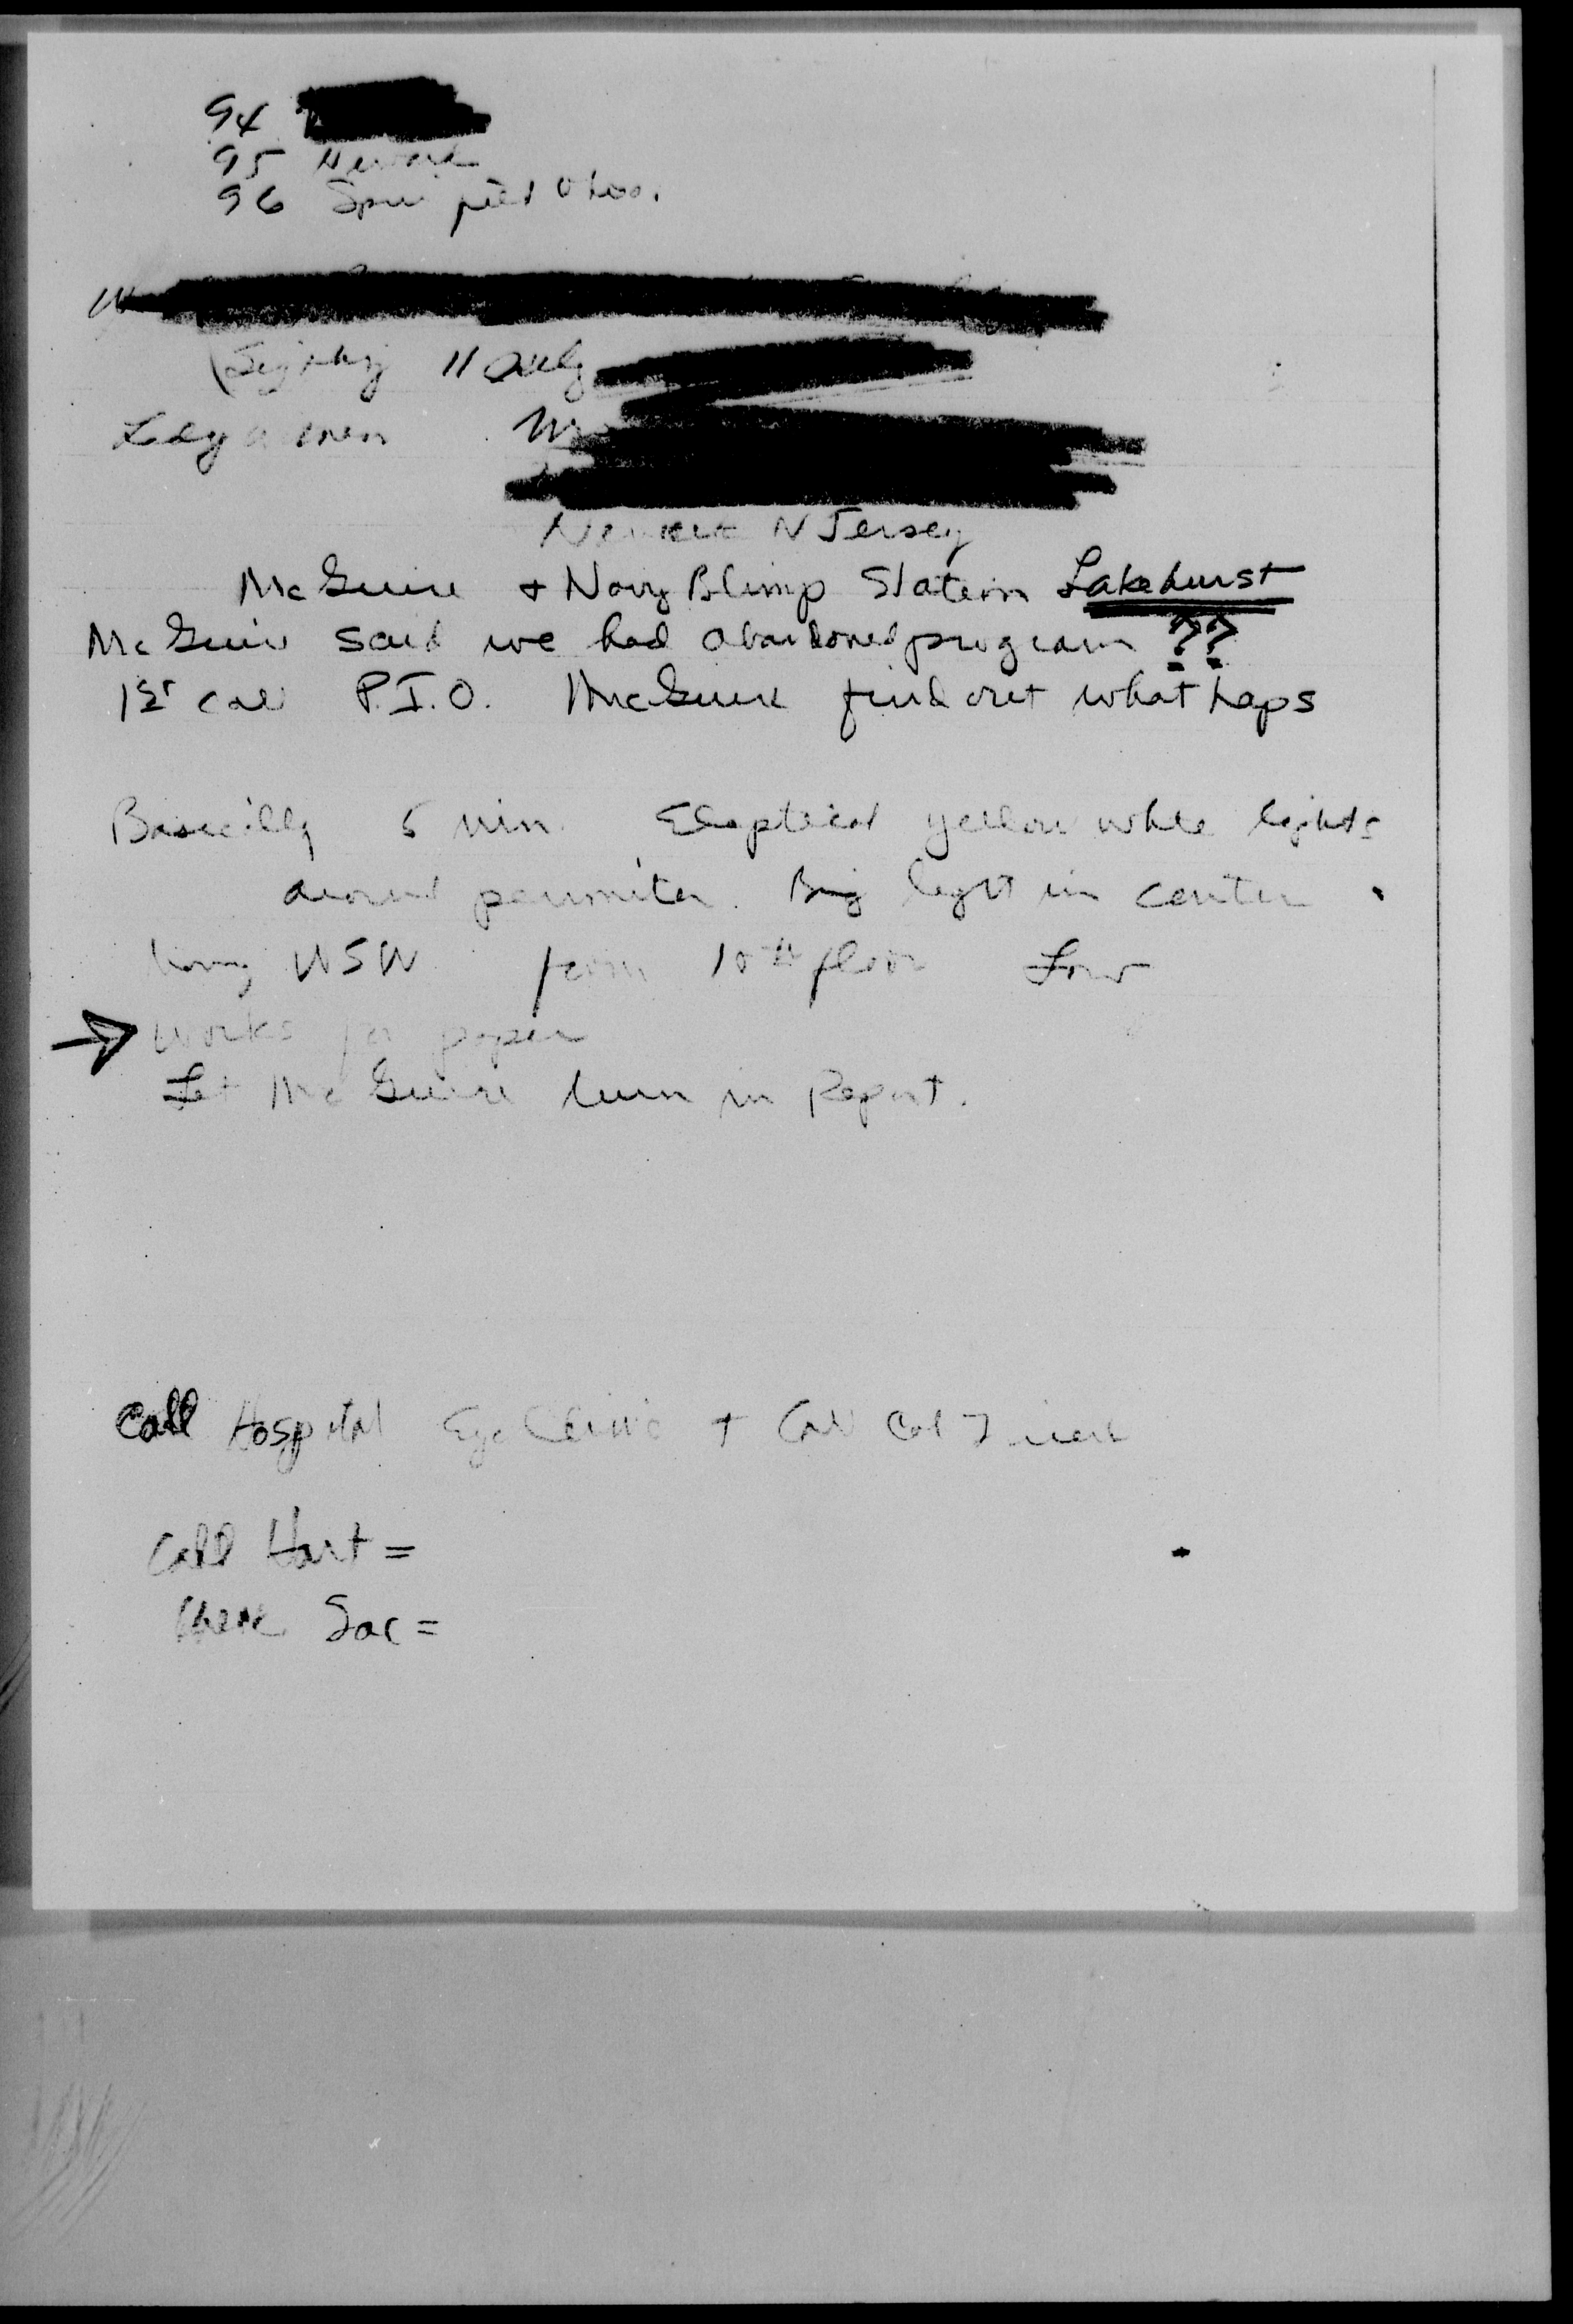 94
95 Newark
96
(Sighting 11 Aug
Newark N Jersey
McGuire + Navy Blimp Station Lakehurst
McGuire said we had abandoned program ??
1st call P.I.O. McGuire find out what haps
Basically 5 min. Eliptical yellow white lights
around perimiter. Big light in center
WSW from 10th floor Low
→ Works for paper
Let McGuire turn in Report.
Call Hospital Eye Clinic + Call Col
Call Hart =
Sac =